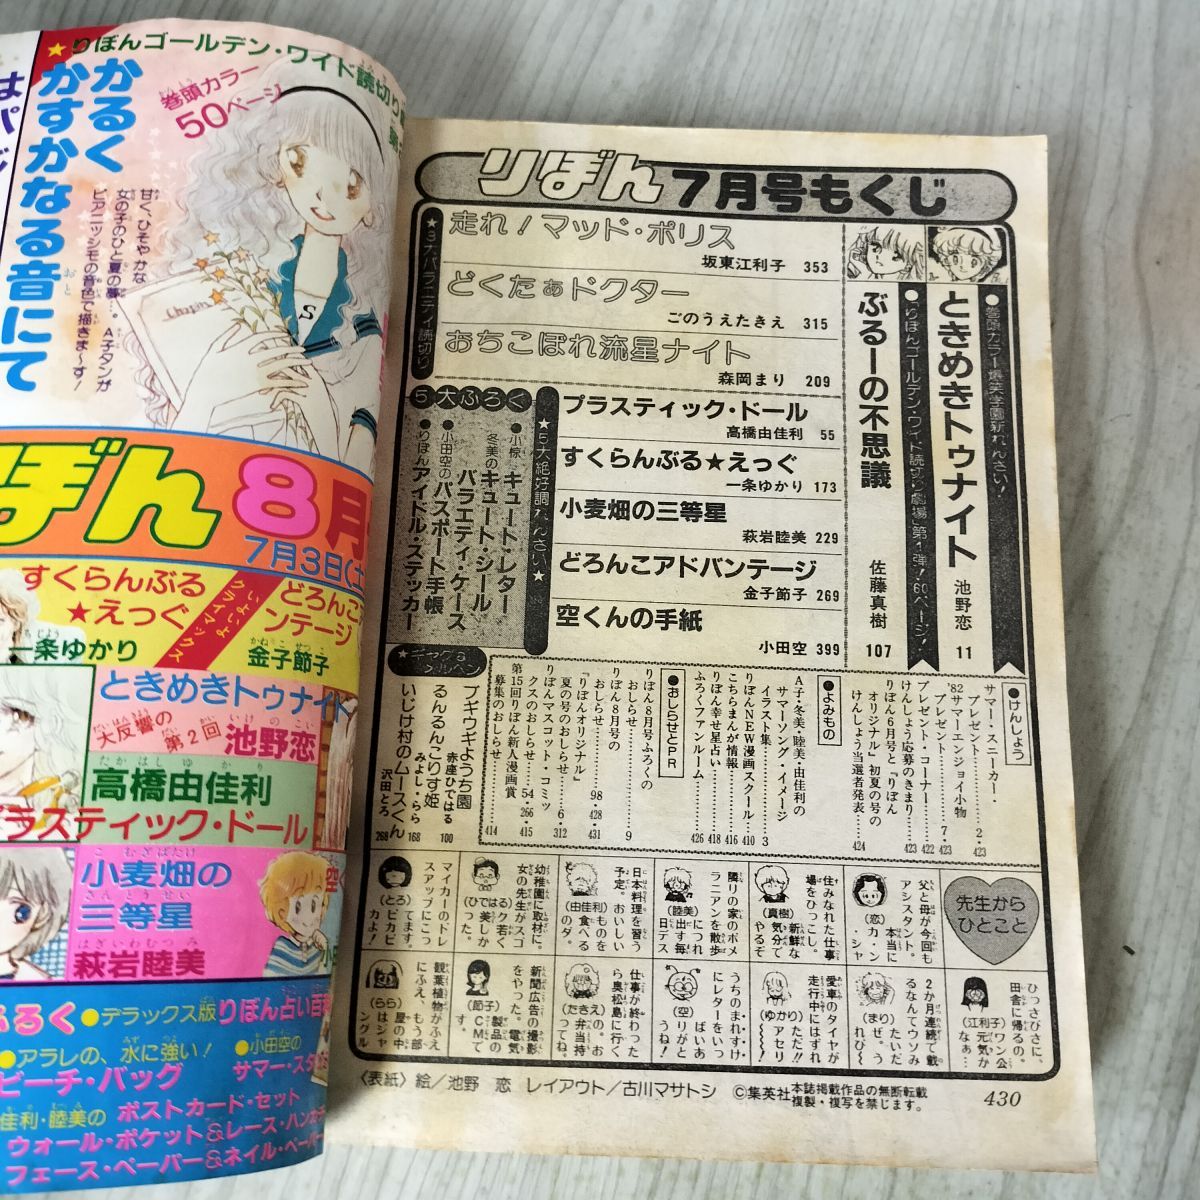 ★りぼんゴールデン・ワイド読切り
巻頭カラー
50ページ
かるく
かすかなる音にて
甘く、ひそやかな
女の子のひと夏の夢…。A子タンが
ピアニッシモの音色で描きま〜す!
Chopin
S
ぼん 8月
7月3日(土
すくらんぶる
★えっぐ
一条ゆかり
いよいよ
クライマックス
どろんこ
ンテージ
金子節子
ときめきトゥナイト
大反響の
第2回
池野恋
高橋由佳利
ラスティック・ドール
小麦畑の
三等星
萩岩睦美
空
ふろく
●デラックス版りぼん占い百
●アラレの、水に強い!
ビーチ・バッグ
●小田空の
サマー・スタ
佳利・睦美の ポストカード・セット
ウォール・ポケット&レース・ハンカチ
フェース・ペーパー&ネイル・ペーパー
りぼん7月号もくじ
●巻頭カラー爆笑学園新れんさい!
ときめきトゥナイト 池野恋 11
●りぼんゴールデン・ワイド読切り劇場第1弾!60ページ!
ぶるーの不思議 佐藤真樹 107
★3大バラエティ読切り
走れ!マッド・ポリス
坂東江利子 353
どくたぁドクター
ごのうえたきえ 315
おちこぼれ流星ナイト
森岡まり 209
★5大絶好調れんさい★
プラスティック・ドール
高橋由佳利 55
すくらんぶる★えっぐ
一条ゆかり 173
小麦畑の三等星
萩岩睦美 229
どろんこアドバンテージ
金子節子 269
空くんの手紙
小田空 399
5大ふろく
●小椋冬美のキュート・レター
キュート・シール
バラエティ・ケース
●小田空のパスポート手帳
●りぼんアイドル・ステッカー
●けんしょう
サマー・スニーカー・
プレゼント 2・423
'82サマーエンジョイ小物
プレゼント 7・423
プレゼント・コーナー 422
けんしょう応募のきまり 423
りぼん6月号と『りぼん
オリジナル』初夏の号の
けんしょう当選者発表 424
●よみもの
A子・冬美・睦美・由佳利の
サマーソング・イメージ
イラスト集 3
りぼんNEW漫画スクール 410
こちらまんが情報 416
りぼん幸せ星占い 418
ふろくファンルーム 426
●おしらせとPR
りぼん8月号ふろくの
おしらせ 9
りぼん8月号の
おしらせ 428・431
『りぼんオリジナル』
夏の号のおしらせ 6・312
りぼんマスコット・コミッ
クスのおしらせ 54・266・415
第15回りぼん新人漫画賞
募集のおしらせ 414
ブギウギようち園
赤座ひではる 100
るんるんこりす姫
みよし・らら 168
いじけ村のムースくん
沢田とろ 268
先生から
ひとこと
父と母が今回も
アシスタント。
本当に
(恋)
住みなれた仕事
場をひっこし。
新鮮な
気分で
やるぞ
(真樹)
隣りの家のポメ
ラニアンを散歩
につれ
出す毎
日デス
(睦美)
日本料理を習う
予定。おいしい
ものを
食べる
のダ。
(由佳利)
幼稚園に取材に。
女の先生がスゴ
ク若く
て美しか
った。
(ひではる)
マイカーのドレ
スアップにこっ
てます。
ピカピ
カよ!
(とろ)
ひさびさに、
田舎に帰るの。
ワン公
元気か
な
(江利子)
2か月連続で載
るなんてウソみ
たいだ
ぜ。う
れぴ〜
(まり)
愛車のタイヤが
走行中にはずれ
ただ!!
アセリ
ただ!!
(ゆかり)
うちのまれ・すけ
にレターをいっ
ぱいあ
りがと
うね!
(空)
仕事が終わった
ら奥松島に行く
の、お
弁当持
ってね。
(たきえ)
新聞広告の撮影
をやった。電気
製品の
CMで
す。
(節子)
観葉植物がふえ
にふえ、もう部
屋の中
はジャ
ングル
(らら)
〈表紙〉絵/池野 恋 レイアウト/古川マサトシ ©集英社 本誌掲載作品の無断転載
複製・複写を禁じます。
430